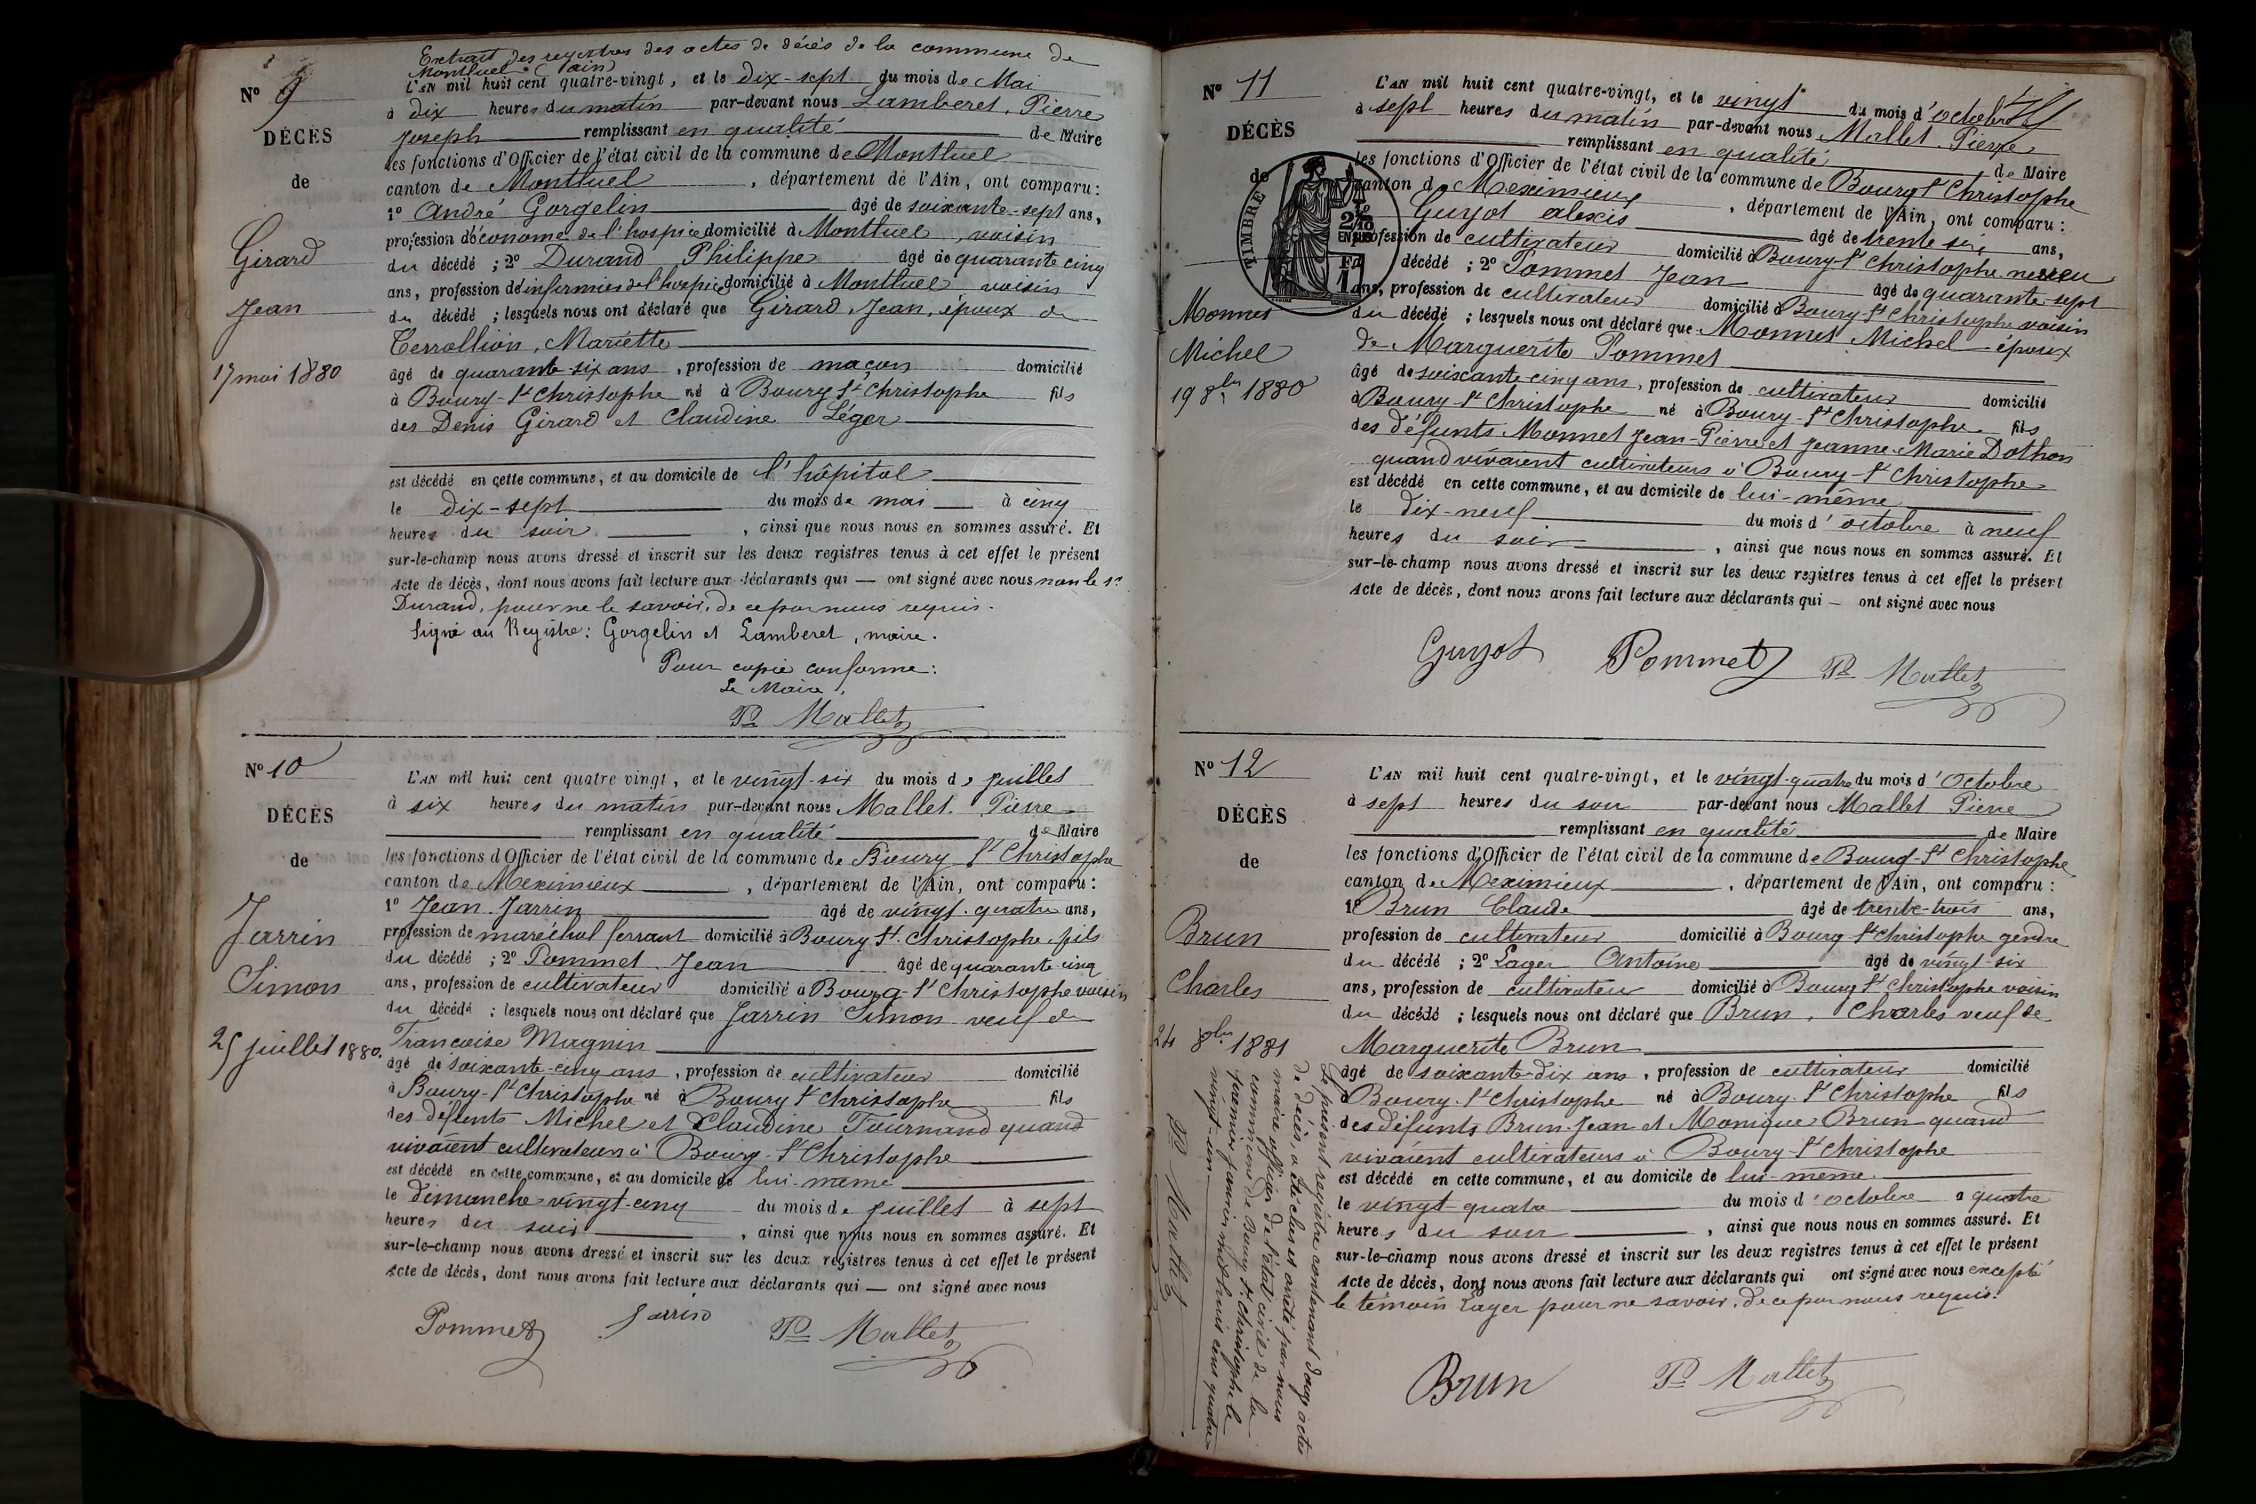 Extrait des registres des actes de décès de la commune de
Montluel (Ain)
Nº 9
L'AN mil huit cent quatre-vingt, et le dix-sept du mois de Mai
à dix heures du matin par-devant nous Lamberet, Pierre
DÉCÈS
Joseph remplissant en qualité de Maire
les fonctions d'Officier de l'état civil de la commune de Montluel
de
canton de Montluel, département de l'Ain, ont comparu :
1º André Gorgelin âgé de soixante-sept ans,
profession d'économe de l'hospice domicilié à Montluel, voisin
Girard
du décédé ; 2º Durand Philippe âgé de quarante cinq
ans, profession d'infirmier de l'hospice domicilié à Montluel voisin
Jean
du décédé ; lesquels nous ont déclaré que Girard, Jean, époux de
Terrollion, Mariette
17 mai 1880
âgé de quarante-six ans, profession de maçon domicilié
à Bourg-St Christophe né à Bourg St Christophe fils
des Denis Girard et Claudine Léger
est décédé en cette commune, et au domicile de l'hôpital
le dix-sept du mois de mai à cinq
heures du soir, ainsi que nous nous en sommes assuré. Et
sur-le-champ nous avons dressé et inscrit sur les deux registres tenus à cet effet le présent
Acte de décès, dont nous avons fait lecture aux déclarants qui — ont signé avec nous non le sr
Durand, pour ne le savoir, de ce par nous requis.
Signé au Registre : Gorgelin et Lamberet, maire.
Pour copie conforme :
Le Maire,
Pre Mallet
Nº 10
L'AN mil huit cent quatre vingt, et le vingt-six du mois de juillet
à six heures du matin par-devant nous Mallet Pierre
DÉCÈS
remplissant en qualité de Maire
de
les fonctions d'Officier de l'état civil de la commune de Bourg St Christophe
canton de Meximieux, département de l'Ain, ont comparu :
1º Jean Jarrin âgé de vingt-quatre ans,
Jarrin
profession de maréchal ferrant domicilié à Bourg St Christophe, fils
du décédé ; 2º Pommet Jean âgé de quarante-cinq
Simon
ans, profession de cultivateur domicilié à Bourg-St Christophe voisin
du décédé ; lesquels nous ont déclaré que Jarrin Simon veuf de
25 juillet 1880.
Francoise Magnin
âgé de soixante-cinq ans, profession de cultivateur domicilié
à Bourg-St Christophe né à Bourg St Christophe fils
des défunts Michel et Claudine Tournand quand
vivaient cultivateurs à Bourg-St Christophe
est décédé en cette commune, et au domicile de lui-même
le dimanche vingt-cinq du mois de juillet à sept
heures du soir, ainsi que nous nous en sommes assuré. Et
sur-le-champ nous avons dressé et inscrit sur les deux registres tenus à cet effet le présent
Acte de décès, dont nous avons fait lecture aux déclarants qui — ont signé avec nous
Pommet Jarrin Pre Mallet
Nº 11
L'AN mil huit cent quatre-vingt, et le vingt du mois d'octobre
à sept heures du matin par-devant nous Mallet Pierre
DÉCÈS
remplissant en qualité de Maire
les fonctions d'Officier de l'état civil de la commune de Bourg St Christophe
de
canton de Meximieux, département de l'Ain, ont comparu :
TIMBRE
2/10
EN SUS
Fr
1
Guyot alexis âgé de trente six ans,
profession de cultivateur domicilié à Bourg-St Christophe neveu
décédé ; 2º Pommet Jean âgé de quarante-sept
ans, profession de cultivateur domicilié à Bourg-St Christophe voisin
Monnet
du décédé ; lesquels nous ont déclaré que Monnet Michel époux
Michel
de Marguerite Pommet
19 8bre 1880
âgé de soixante-cinq ans, profession de cultivateur domicilié
à Bourg-St Christophe né à Bourg-St Christophe fils
des défunts Monnet Jean-Pierre et Jeanne-Marie Dothon
quand vivaient cultivateurs à Bourg-St Christophe
est décédé en cette commune, et au domicile de lui-même
le dix-neuf du mois d'octobre à neuf
heures du soir, ainsi que nous nous en sommes assuré. Et
sur-le-champ nous avons dressé et inscrit sur les deux registres tenus à cet effet le présent
Acte de décès, dont nous avons fait lecture aux déclarants qui — ont signé avec nous
Guyot Pommet Pre Mallet
Nº 12
L'AN mil huit cent quatre-vingt, et le vingt-quatre du mois d'Octobre
à sept heures du soir par-devant nous Mallet Pierre
DÉCÈS
remplissant en qualité de Maire
de
les fonctions d'Officier de l'état civil de la commune de Bourg-St Christophe
canton de Meximieux, département de l'Ain, ont comparu :
1º Brun Claude âgé de trente-trois ans,
Brun
profession de cultivateur domicilié à Bourg St Christophe gendre
du décédé ; 2º Lager Antoine âgé de vingt-six
Charles
ans, profession de cultivateur domicilié à Bourg St Christophe voisin
du décédé ; lesquels nous ont déclaré que Brun, Charles veuf de
24 8bre 1881
Marguerite Brun
âgé de soixante-dix ans, profession de cultivateur domicilié
à Bourg-St Christophe né à Bourg-St Christophe fils
des défunts Brun Jean et Monique Brun quand
vivaient cultivateurs à Bourg-St Christophe
est décédé en cette commune, et au domicile de lui-même
le vingt-quatre du mois d'octobre à quatre
heures du soir, ainsi que nous nous en sommes assuré. Et
sur-le-champ nous avons dressé et inscrit sur les deux registres tenus à cet effet le présent
Acte de décès, dont nous avons fait lecture aux déclarants qui ont signé avec nous excepté
le témoin Lager pour ne savoir, de ce par nous requis.
Brun Pre Mallet
Le présent registre contenant douze actes
de décès, a été clos et arrêté par nous
maire officier de l'état civil de la
commune de Bourg St Christophe le
premier janvier mil huit cent quatre
vingt-un
Pre Mallet